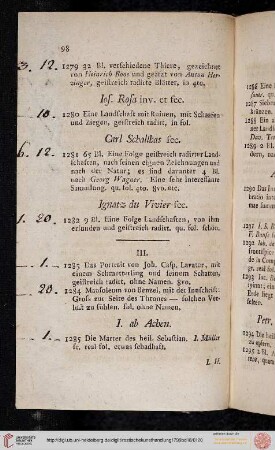 98
3. 12. 1279 32 Bl. verschiedene Thiere, gezeichnet
von Heinrich Roos und geätzt von Anton Her-
zinger, geistreich radirte Blätter, in 4to.
Jos. Rosa inv. et fec.
10. 1280 Eine Landschaft mit Ruinen, mit Schaafen
und Ziegen, geistreich radirt, in fol.
Carl Schallhas fec.
6. 12. 1281 65 Bl. Eine Folge geistreich radirter Land-
schaften, nach seinen eignen Zeichnungen und
nach der Natur; es sind darunter 4 Bl.
nach Georg Wagner. Eine sehr interessante
Sammlung. qu. fol. 4to. 8vo. etc.
Ignatz du Vivier fec.
1. 20. 1282 9 Bl. Eine Folge Landschaften, von ihm
erfunden und geistreich radirt. qu. fol. schön.
III.
1. 1283 Das Portrait von Joh. Casp. Lavater, mit
einem Schmetterling und seinem Schatten,
geistreich radirt, ohne Namen. 8vo.
20. 1284 Mausoleum von Benzel, mit der Innschrift:
Gross zur Seite des Thrones — solchen Ver-
lust zu fühlen. fol. ohne Namen.
I. ab Achen.
1. 1285 Die Marter des heil. Sebastian. I. Müller
sc. real fol. etwas schadhaft.
I. H.